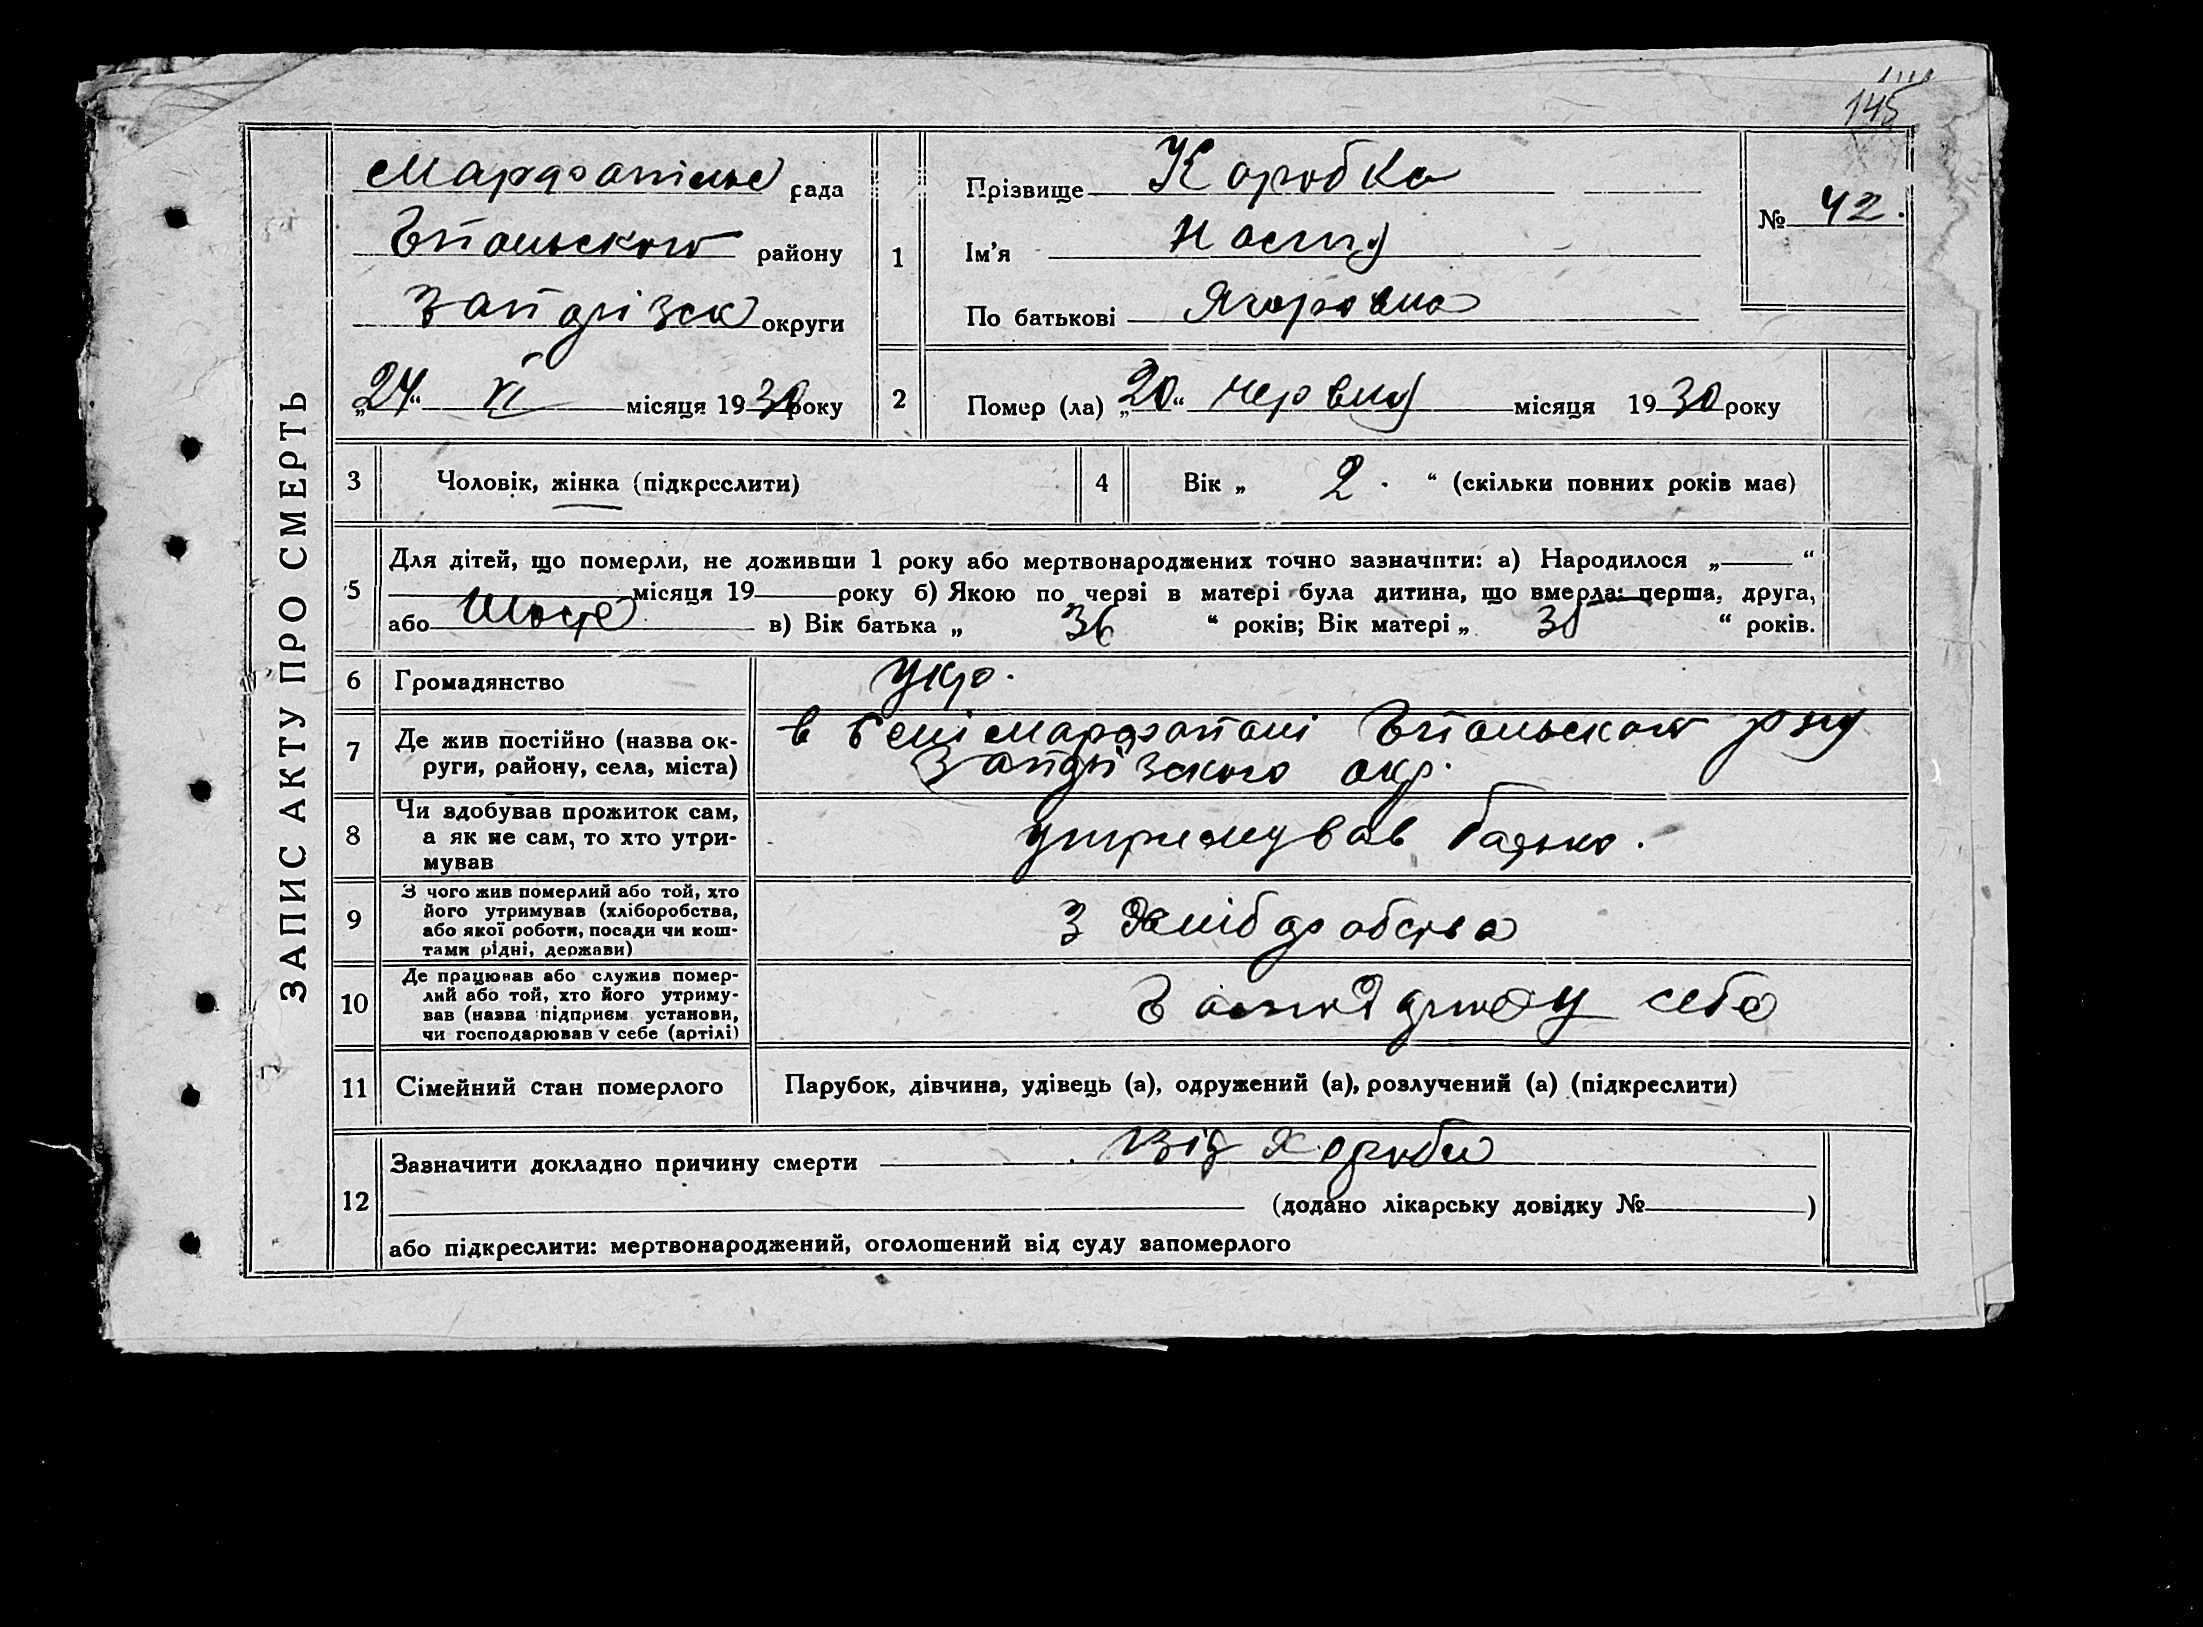 145
ЗАПИС АКТУ ПРО СМЕРТЬ
рада
району
округи
„24“ VI місяця 1930 року
1
Прізвище Коробка
Ім'я Настя
По батькові Ягоровна
№ 42.
2
Помер (ла) „20“ червня місяця 1930 року
3
Чоловік, жінка (підкреслити)
4
Вік „ 2. “ (скільки повних років має)
5
Для дітей, що померли, не доживши 1 року або мертвонароджених точно зазначити: а) Народилося „ “
місяця 19 року б) Якою по черзі в матері була дитина, що вмерла: перша, друга,
або Шосте в) Вік батька „ 36 “ років; Вік матері „ “ років.
6
Громадянство
укр.
7
Де жив постійно (назва ок-
руги, району, села, міста)
в окр.
8
Чи здобував прожиток сам,
а як не сам, то хто утри-
мував
утримував батько.
9
З чого жив померлий або той, хто
його утримував (хліборобства,
або якої роботи, посади чи кош-
тами рідні, держави)
З хліборобства
10
Де працював або служив помер-
лий або той, хто його утриму-
вав (назва підприєм. установи,
чи господарював у себе (артілі)
у себе
11
Сімейний стан померлого
Парубок, дівчина, удівець (а), одружений (а), розлучений (а) (підкреслити)
12
Зазначити докладно причину смерти від хороби
(додано лікарську довідку № )
або підкреслити: мертвонароджений, оголошений від суду запомерлого